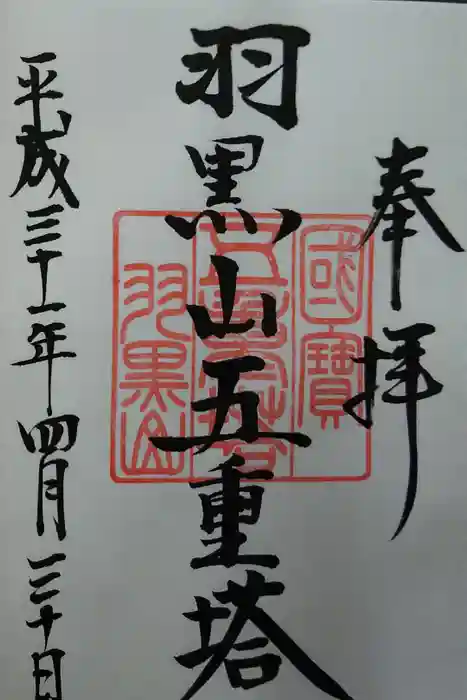 奉拝
羽黒山五重塔
國寶
五重塔
羽黒山
平成三十一年四月三十日